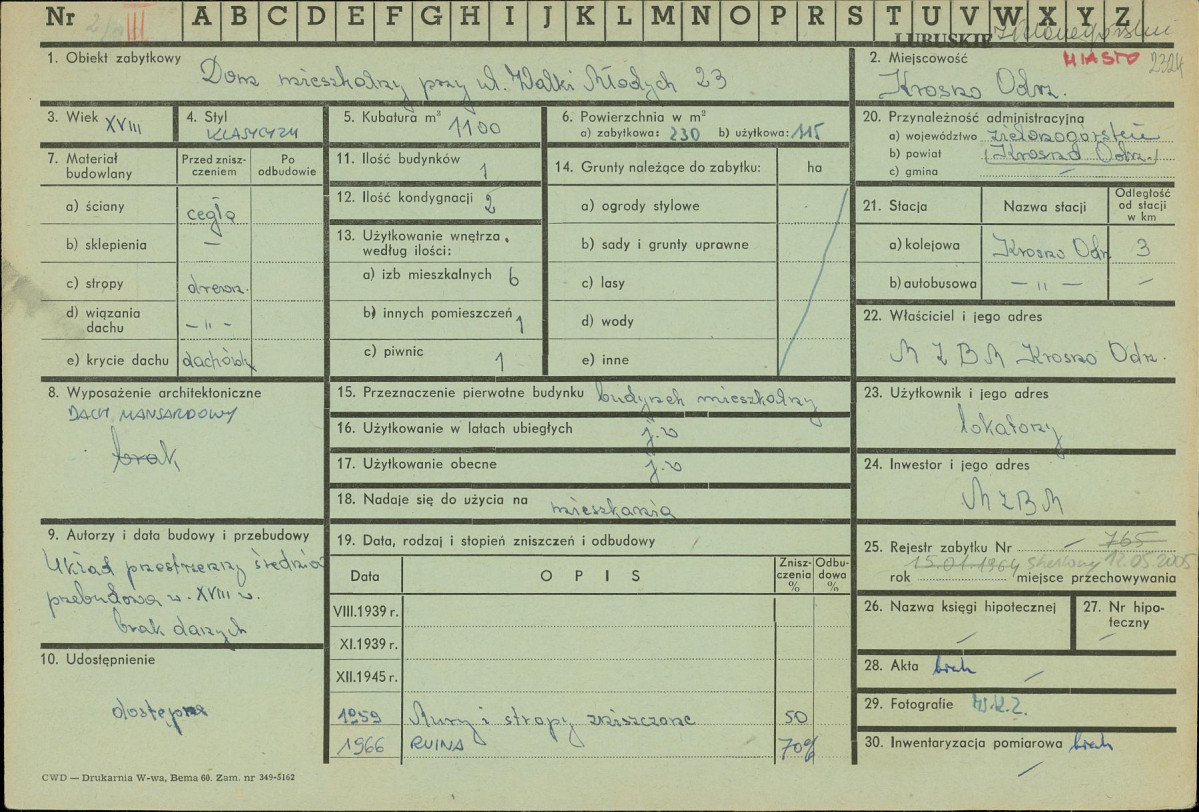 Nr
III
A B C D E F G H I J K L M N O P R S T U V W X Y Z
LUBUSKIE
MIASTO 2324
1. Obiekt zabytkowy
Dom mieszkalny przy ul. Walki Młodych 23
2. Miejscowość
Krosno Odrz.
3. Wiek XVIII
4. Styl
KLASYCYZM
5. Kubatura m³ 1100
6. Powierzchnia w m²
a) zabytkowa: 230 b) użytkowa: 115
20. Przynależność administracyjną
a) województwo zielonogórskie
b) powiat (Krosno Odrz.)
c) gmina —
7. Materiał budowlany
Przed zniszczeniem
Po odbudowie
a) ściany cegła
b) sklepienia —
c) stropy drewn.
d) wiązania dachu — " —
e) krycie dachu dachówka
11. Ilość budynków 1
12. Ilość kondygnacji 2
13. Użytkowanie wnętrza według ilości:
a) izb mieszkalnych 6
b) innych pomieszczeń 1
c) piwnic 1
14. Grunty należące do zabytku:
ha
a) ogrody stylowe
b) sady i grunty uprawne
c) lasy
d) wody
e) inne
21. Stacja
Nazwa stacji
Odległość od stacji w km
a) kolejowa Krosno Odr 3
b) autobusowa — " — —
22. Właściciel i jego adres
M Z B M Krosno Odrz.
8. Wyposażenie architektoniczne
DACH MANSARDOWY
brak
15. Przeznaczenie pierwotne budynku budynek mieszkalny
16. Użytkowanie w latach ubiegłych j.w
17. Użytkowanie obecne j.w
18. Nadaje się do użycia na mieszkania
23. Użytkownik i jego adres
lokatorzy
24. Inwestor i jego adres
M Z B M
9. Autorzy i data budowy i przebudowy
Układ przestrzenny średniow
przebudowa w. XVIII w.
brak danych
10. Udostępnienie
dostępne
19. Data, rodzaj i stopień zniszczeń i odbudowy
Data
O P I S
Zniszczenia %
Odbudowa %
VIII.1939 r.
XI.1939 r.
XII.1945 r.
1959 Mury i stropy zniszczone 50
1966 RUINA 70%
25. Rejestr zabytku Nr — 765
15.01.1964 skreślony 12.05.2005
rok miejsce przechowywania
26. Nazwa księgi hipotecznej
27. Nr hipoteczny
28. Akta brak
29. Fotografie W.K.Z.
30. Inwentaryzacja pomiarowa brak
CWD — Drukarnia W-wa, Bema 60. Zam. nr 349-5162